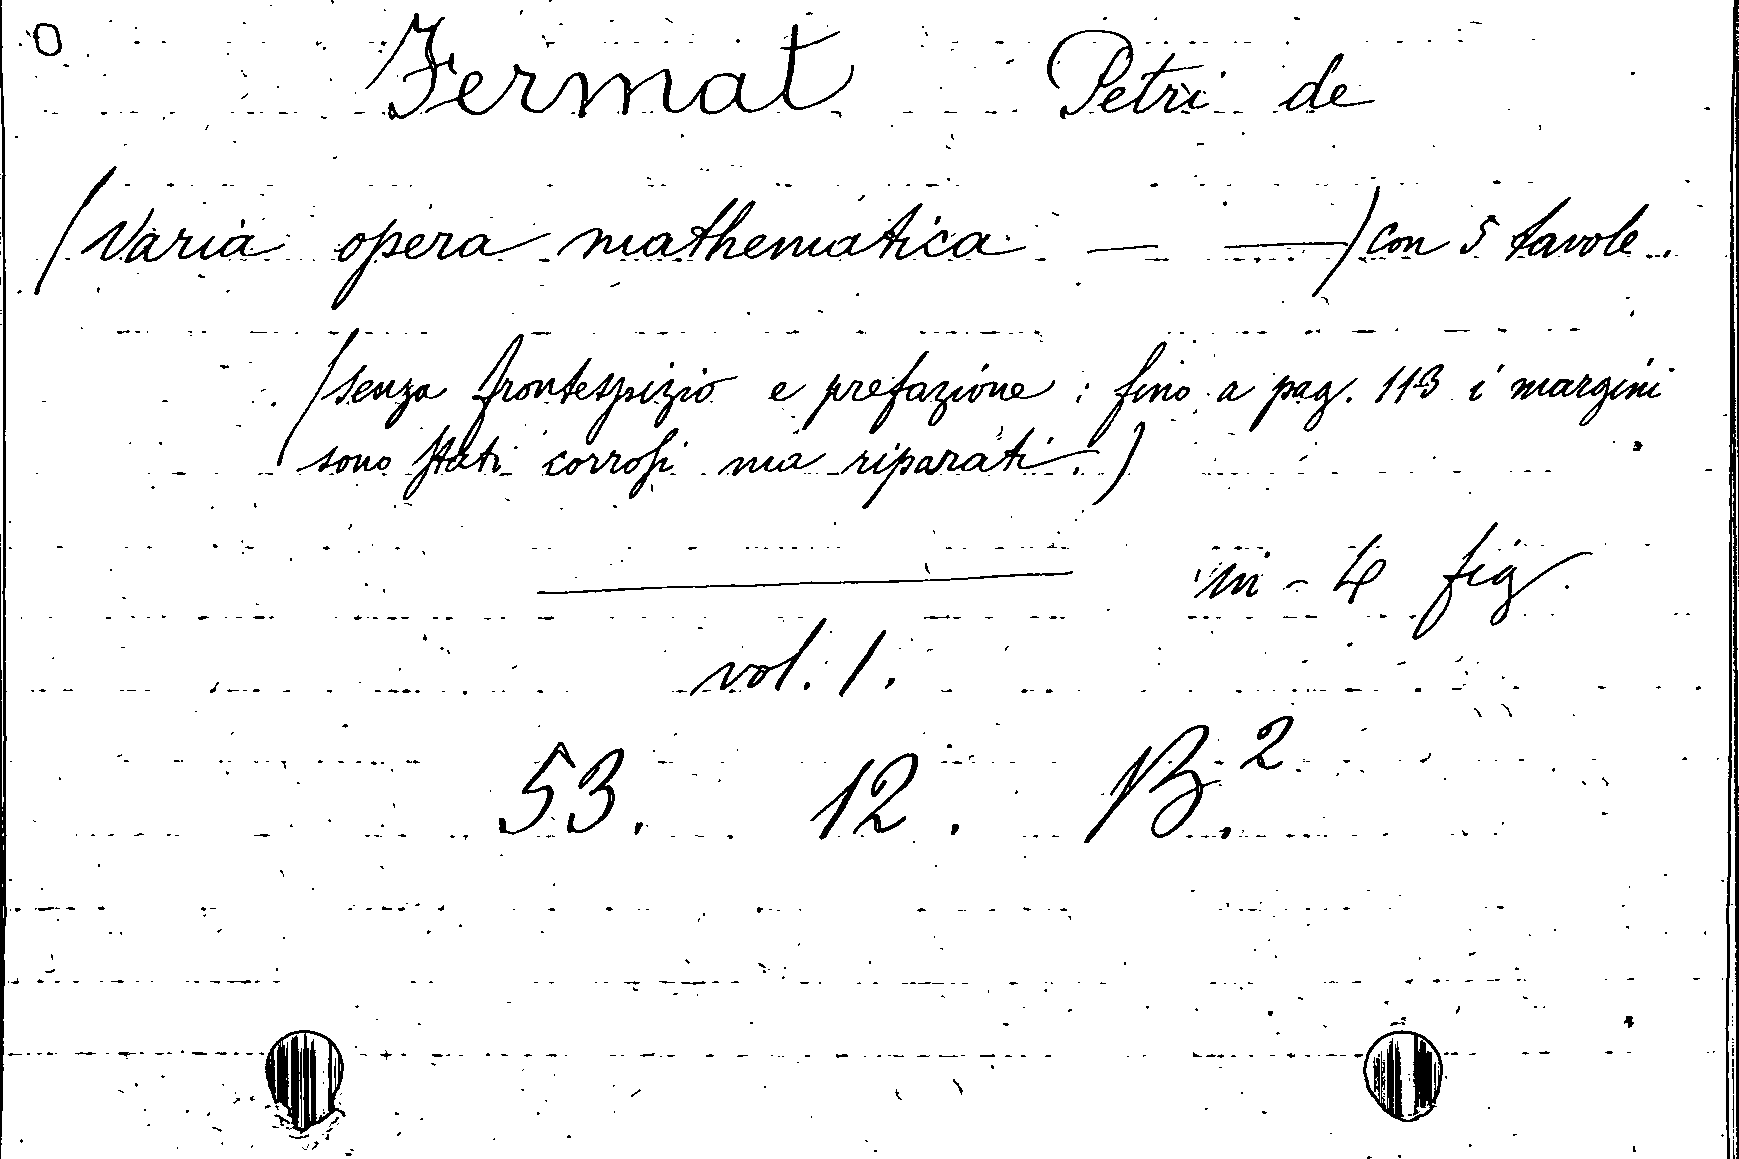 O
Fermat Petri de
(Varia opera mathematica — —) con 5 tavole.
(senza frontespizio e prefazione: fino a pag. 113 i margini
sono stati corrosi ma riparati.)
in-4 fig.
vol. 1.
53. 12. B.2